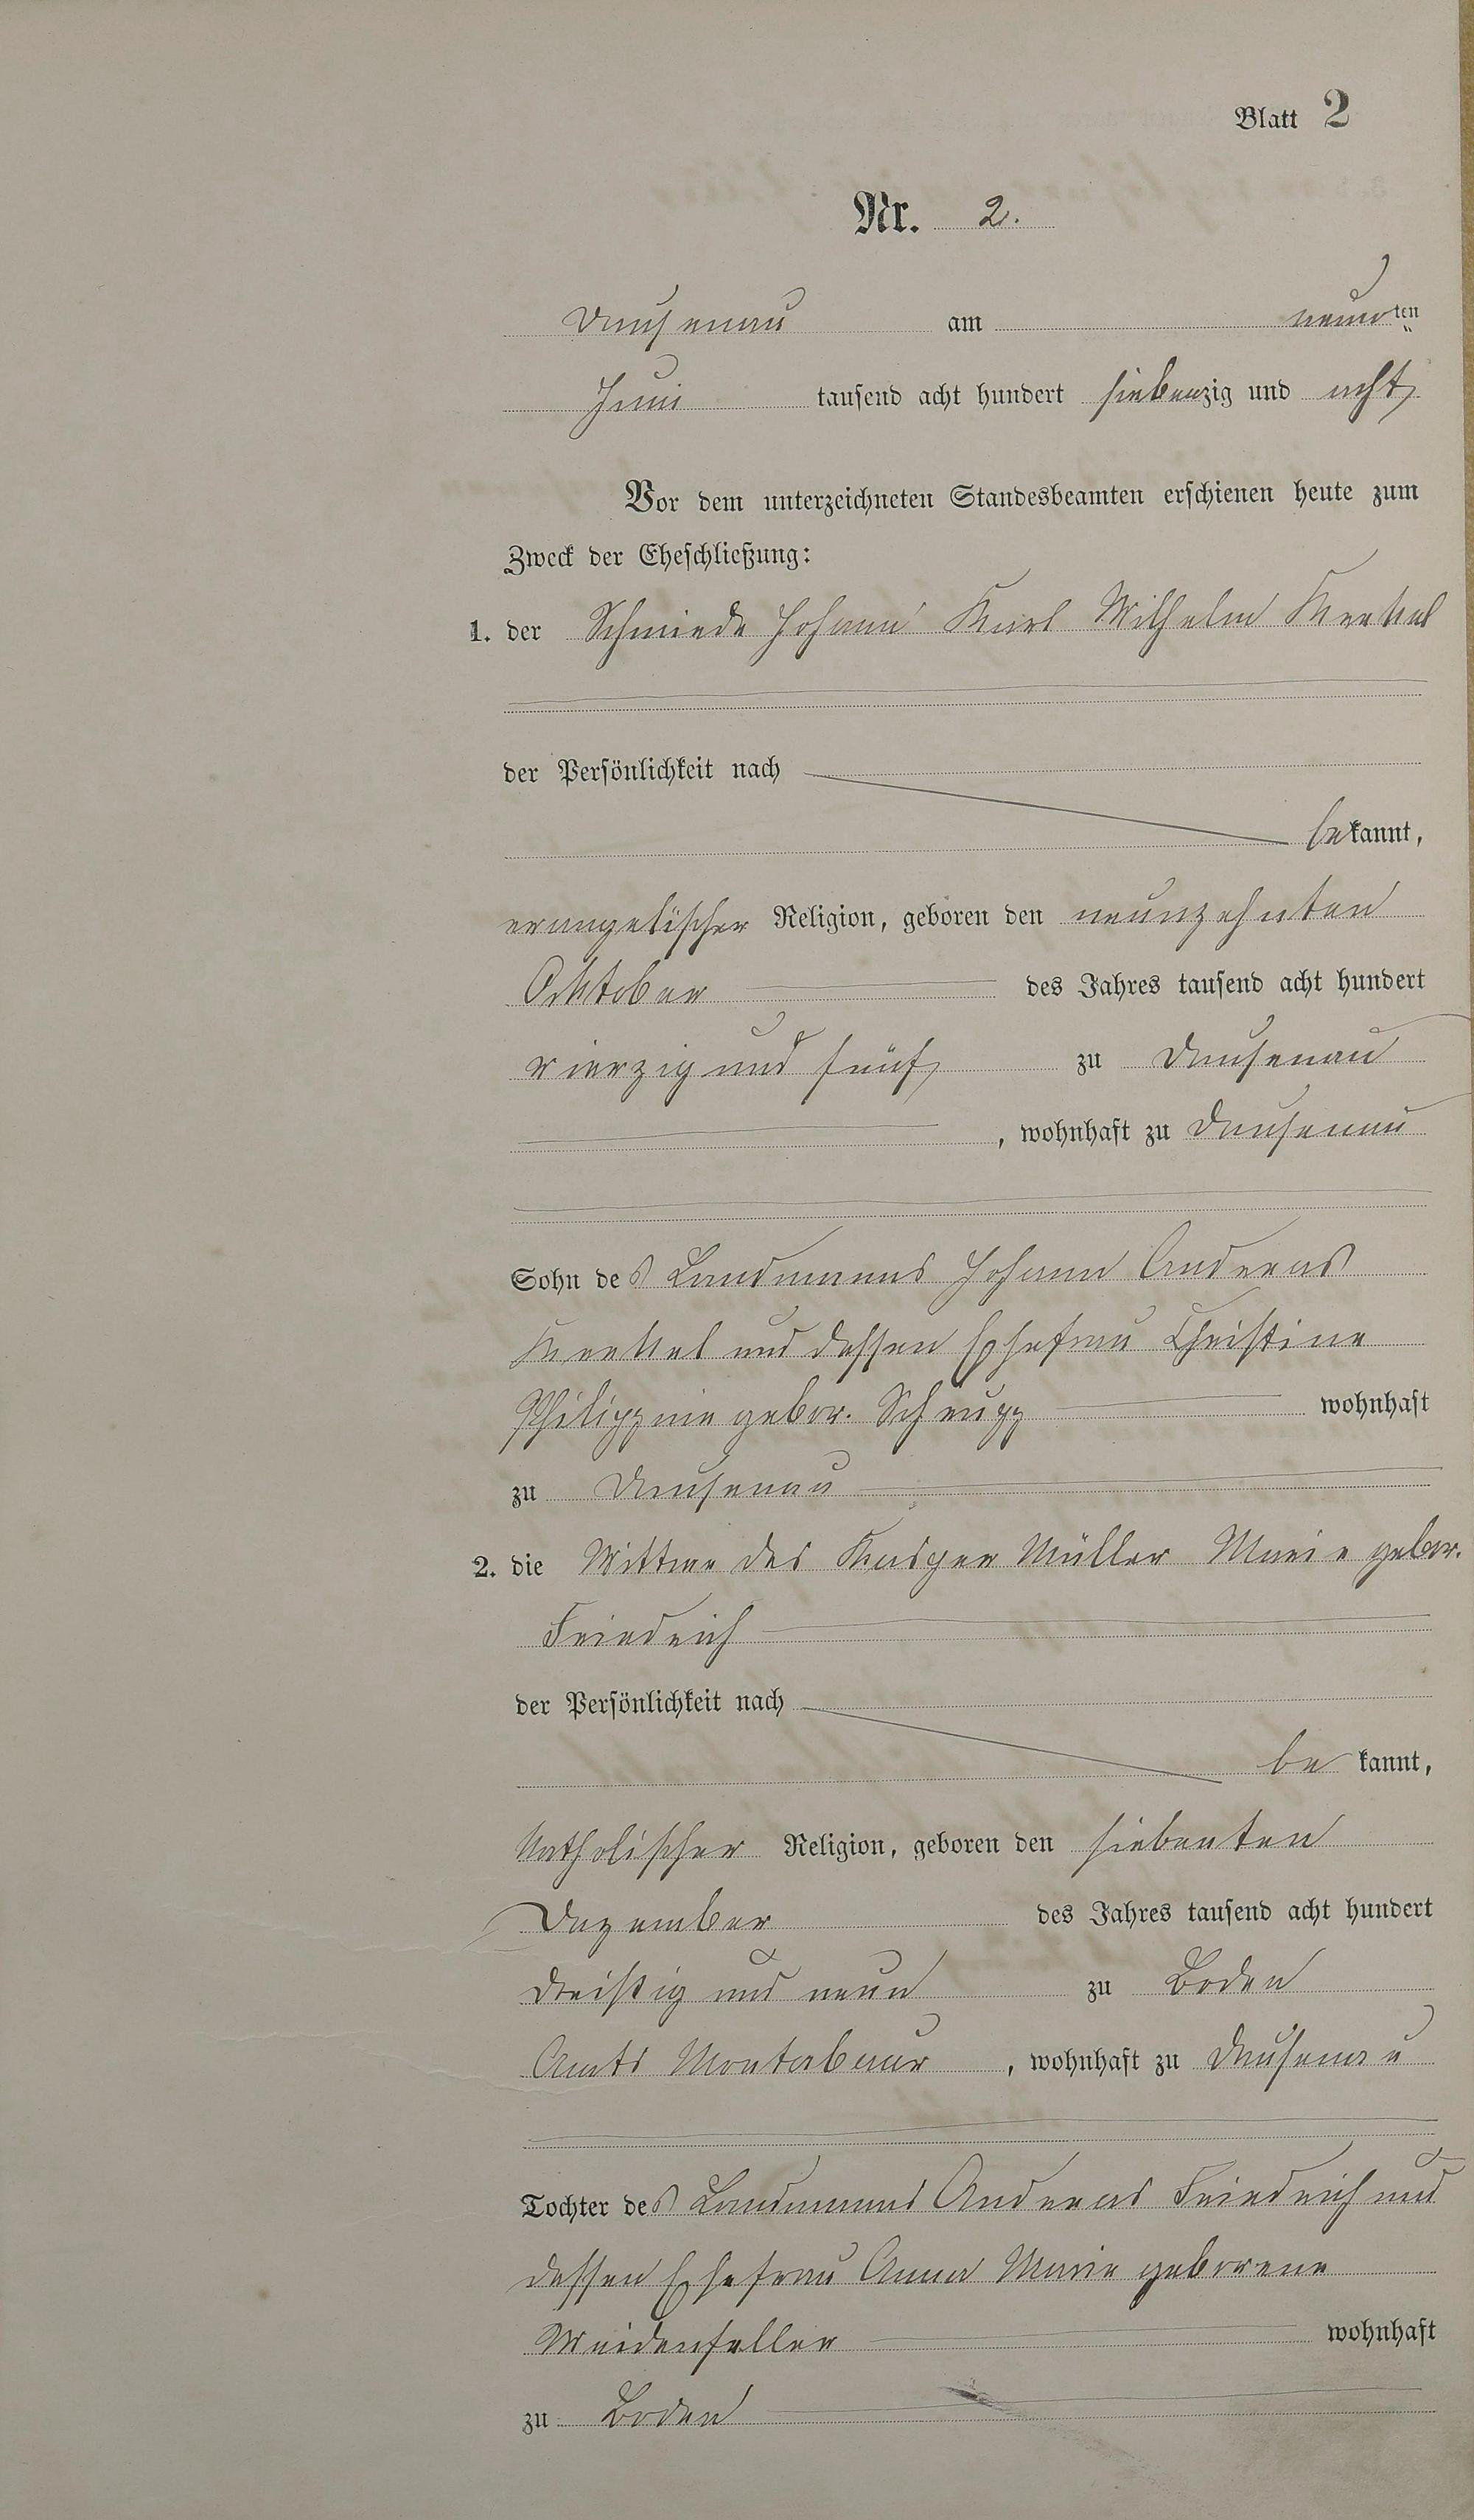 Blatt 2
Nr. 2.
Dausenau am neunten
Juni tausend acht hundert siebenzig und acht
Vor dem unterzeichneten Standesbeamten erschienen heute zum
Zweck der Eheschließung:
1. der Schmiede Johann Karl Wilhelm Merkel
der Persönlichkeit nach
bekannt,
evangelischer Religion, geboren den neunzehnten
Oktober des Jahres tausend acht hundert
vierzig und fünf zu Dausenau
, wohnhaft zu Dausenau
Sohn des Landmanns Johann Andreas
Merkel und dessen Ehefrau Christine
Philippine gebor. Scheupp wohnhaft
zu Dausenau
2. die Wittwe des Kasper Müller Marie gebor.
Friedrich
der Persönlichkeit nach
be kannt,
katholischer Religion, geboren den siebenten
Dezember des Jahres tausend acht hundert
dreißig und neun zu Boden
Amts Montabaur , wohnhaft zu Dausenau
Tochter des Landmanns Andreas Friedrich und
dessen Ehefrau Anna Marie geborene
Weidenfeller wohnhaft
zu Boden